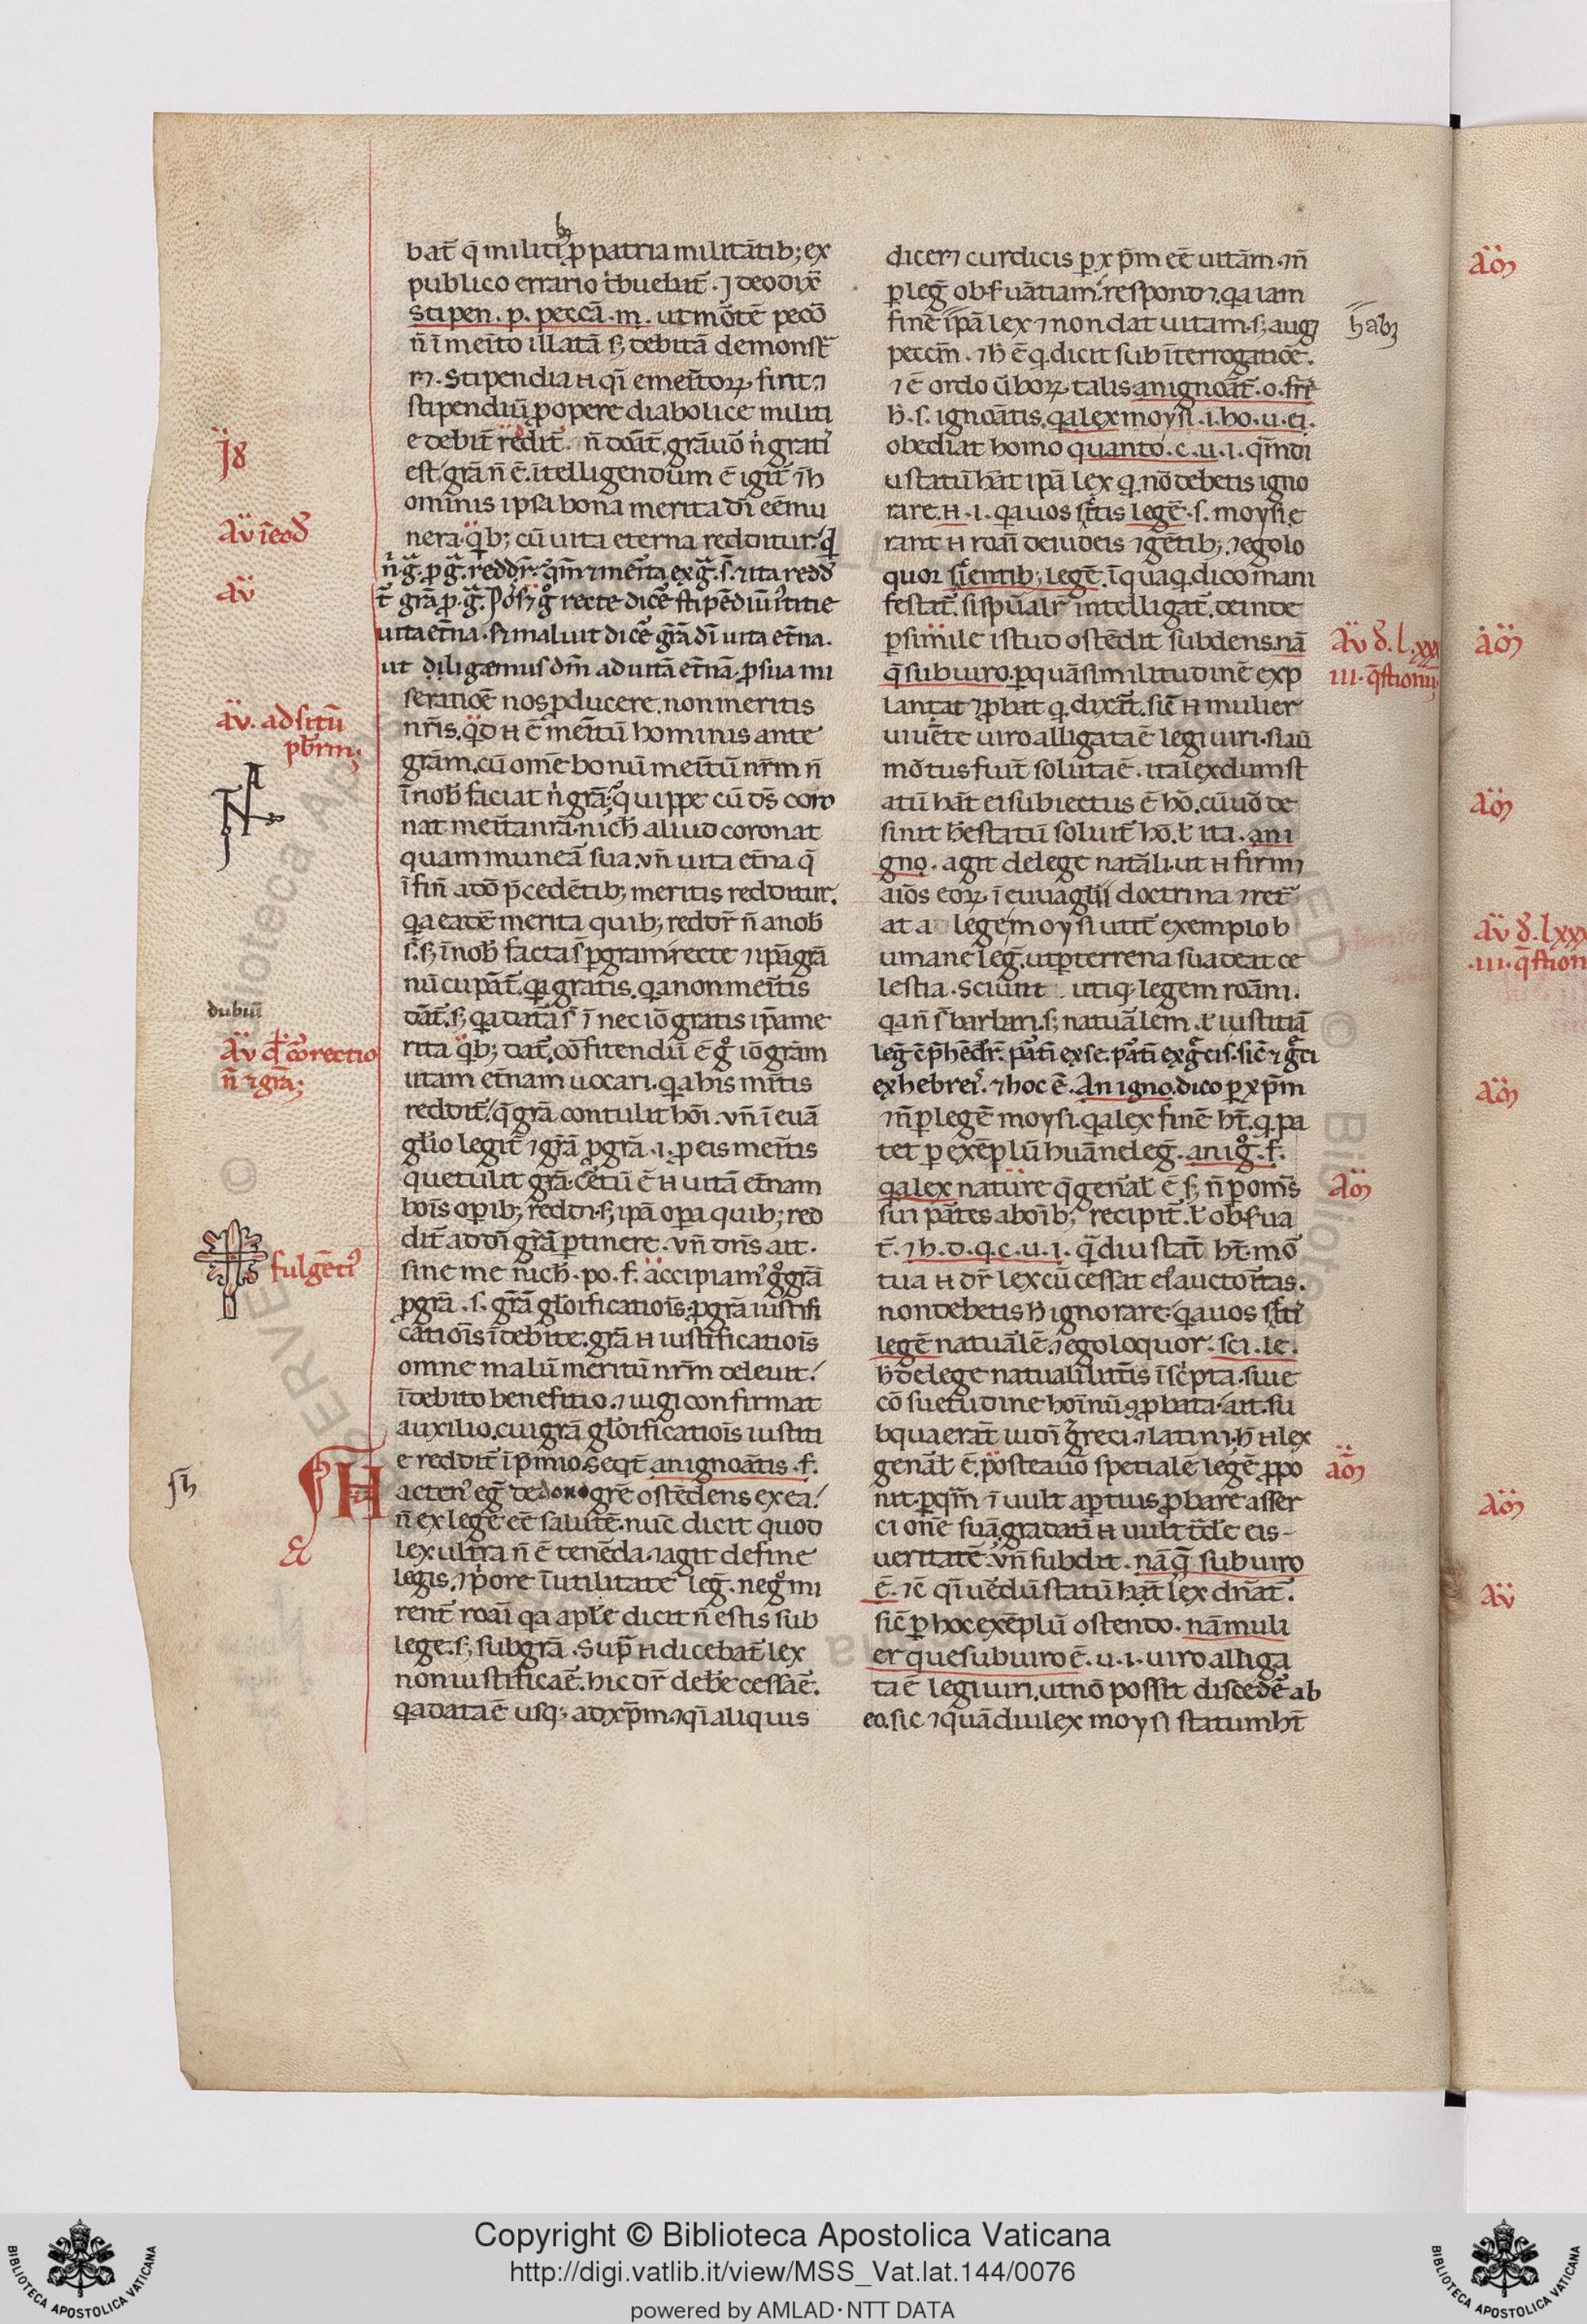 bat̄ q̄ militib; p patria militātib; ex
publico errario t̾buebat̄. ⁊ deo dix̄
stipen. p. peccā. m. ut mōtē pecc̄o
n̄ īmeīto illatā s; debitā demonst̄
r&. Stipendia n̄ qī emeītoꝝ firit
stipendiū p opere diabolice militi
e debit̄ redit̄. n̄ doāt̄. grā uō n̄ grati
est. grā n̄ ē. ītelligendum ē igit̄ īh
ominis ipsa bona merita dī eē mu
nera. qib; cū uita eterna redditur. q
uita et̄na. s; maluit dicē grā dī uita et̄na.
ut diligamus dm̄ ad uitā et̄nā. p sua mi
seratiōe nos pducere. non meritis
nr̄is. qd n̄ ē meītū hominis ante
grām. cū om̄e bonū meītū nr̄m n̄
ī nob̄ faciat n̄ grā. quippe cū ds̄ coro
nat meīta nr̄a. nich̄ aliud coronat
quam munea sua. vn̄ uita et̄na q̄
ī fin̄ a dō p̄cedētib; meritis redditur.
qa eadē merita quib; reddr̄ n̄ a nob̄
s̄. s; ī nob̄ facta s̄ p gram. recte ⁊ ip̄a grā
nūcupāt̄. qa gratis. qa non meītis
dāt̄. s; qa data s̄ ī nec iō gratis ip̄a me
rita qib; dat̄. cōfitendū ē g̊ iō grām
uitam et̄nam uocari. qa his mītis
reddit̄. q̄ grā contulit hōi. vn̄ ī euā
glio legit̄ ⁊ grā p grā. .i. p eis meītis
que tulit grā. cētū ē n̄ uitā et̄nam
bois op̄ib; reddi. s; ip̄a op̄a quib; red
dit̄ ad dī grā ptinere. vn̄ dn̄s ait.
sine me nich̄. po. f. accipiam g̊ grā
p grā. s. grā glorificatiois. p grā iustifi
catiois īdebite. grā n̄ iustificatiois
omne malū meritū nr̄m deleuit.
īdebito benefitio. ⁊ iugi confirmat
auxilio. cui grā glorificatiois iustiti
e reddit̄ ī p̄mio. Seqt̄ an ignoātis. f.
Hacten̄ eḡ de dono gr̄e ostēdens ex ea
n̄ ex lege eē salutē. nūc dicit quod
lex ultra n̄ ē tenēda. ⁊ agit de fine
legis. ⁊ pore īutilitate leḡ. neg̊ mi
rent̄ roāi qa apl̄e dicit n̄ estis sub
lege. s; sub grā. Sup̄ n̄ dicebat̄ lex
non iustificaē. hic dr̄ debe cessaē.
qa data ē usq; ad xp̄m. ⁊ qī aliquis
dicer& cur dicis p xp̄m eē uitām. ⁊ n̄
p leḡ obs̄uātiam. respond&. qa iam
finē ip̄a lex ⁊ non dat uitam. s; aug&
peccm̄. ⁊ h̄ ē q̄ dicit sub īterrogatiōē.
⁊ ē ordo ūboꝝ talis an ignoāt̄. o. frē
h̄. s. ignoātis. qa lex moysi. i. ho. u. ei.
obediat homo quanto. c. u. i. qm̄di
u statū hāt ip̄a lex q̄ nō debetis igno
rare. n̄. i. qa uos s̄itis legē. s. moysi e
rant n̄ roāi de iudeis ⁊ gētib; ⁊ ego lo
quor sīentib; legē. ī qua q̄ dico mani
festat̄. si spūalr̄ intelligat̄. deinde
p simile istud ostēdit subdens. nā
q̄ sub uiro. p quā similitudinē exp
lanat ⁊ pbat q̄ dixāt̄. sic̄ n̄ mulier
uiuēte uiro alligata ē legi uiri. si aū
mōtus fuit̄ soluta ē. ita lex dum st
atū hāt ei subiectus ē hō. cū uō de
sinit h̄ere statū soluit̄ hō. ł ita. an i
gno. agit de lege natāli. ut n̄ firm&
aīos eoꝝ ī euuaglii doctrina ⁊ ret̾
at a lege moysi utit̄ exemplo h
umane leḡ. ut p terrena suadeat ce
lestia. Sciunt utiq; legem roāni.
qa n̄ s̄ barbari. s; natuālem. ł iustitiā
ex hebreis. ⁊ hoc ē. An igno. dico p xp̄m
⁊ n̄ p legē moysi. qa lex finē ht̄. q̄ pa
tet p exēplū huāne leḡ. an ig̊. f.
qa lex nature q̄ genāl ē s; n̄ p om̄s
sui pātes a boib; recipit̄. ł obs̄ua
t̄. ⁊ h. d. q. c. u. i. q̄diu stāt̄ ht̄. mō
tua n̄ dr̄ lex cū cessat ei auctoītas.
non debetis h̄ ignorare. qa uos s̄itis
legē natuālē. ⁊ ego loquor. sci. le.
h̄ de lege natuali litt̄is īscipta. siue
cōsuetudine hoīnū ⁊ pbata. ait. su
b qua erāt̄ iudi greci. ⁊ latini. h̄ n̄ lex
genāl ē. postea uō spetialē legē ppo
nit. p qm̄ ī uult aptius pbare asser
cionē suā. gradatī n̄ uult t̄d̄e eis
ueritatē. vn̄ subdit. nā q̄ sub uiro
ē. ⁊ ē qī uēdū statū hāt̄ lex dn̄at̄.
sic̄ p hoc exēplū ostendo. nā muli
er que sub uiro ē. u. i. uiro alliga
ta ē legi uiri. ut nō possit discedē ab
eo. sic ⁊ quā diu lex moysi statum ht̄
av īeod̄
av
av. ad situ
pb̄rm;
dubiū
Av d̄ cōrectio
n̄ ⁊ grā;
fulgēti᾿
h̄ab&
Av d̄. l.xxx
iii. q̄stionū
Am̄
Am̄
Copyright © Biblioteca Apostolica Vaticana
http://digi.vatlib.it/view/MSS_Vat.lat.144/0076
powered by AMLAD·NTT DATA
BIBLIOTECA APOSTOLICA VATICANA
BIBLIOTECA APOSTOLICA VATICANA